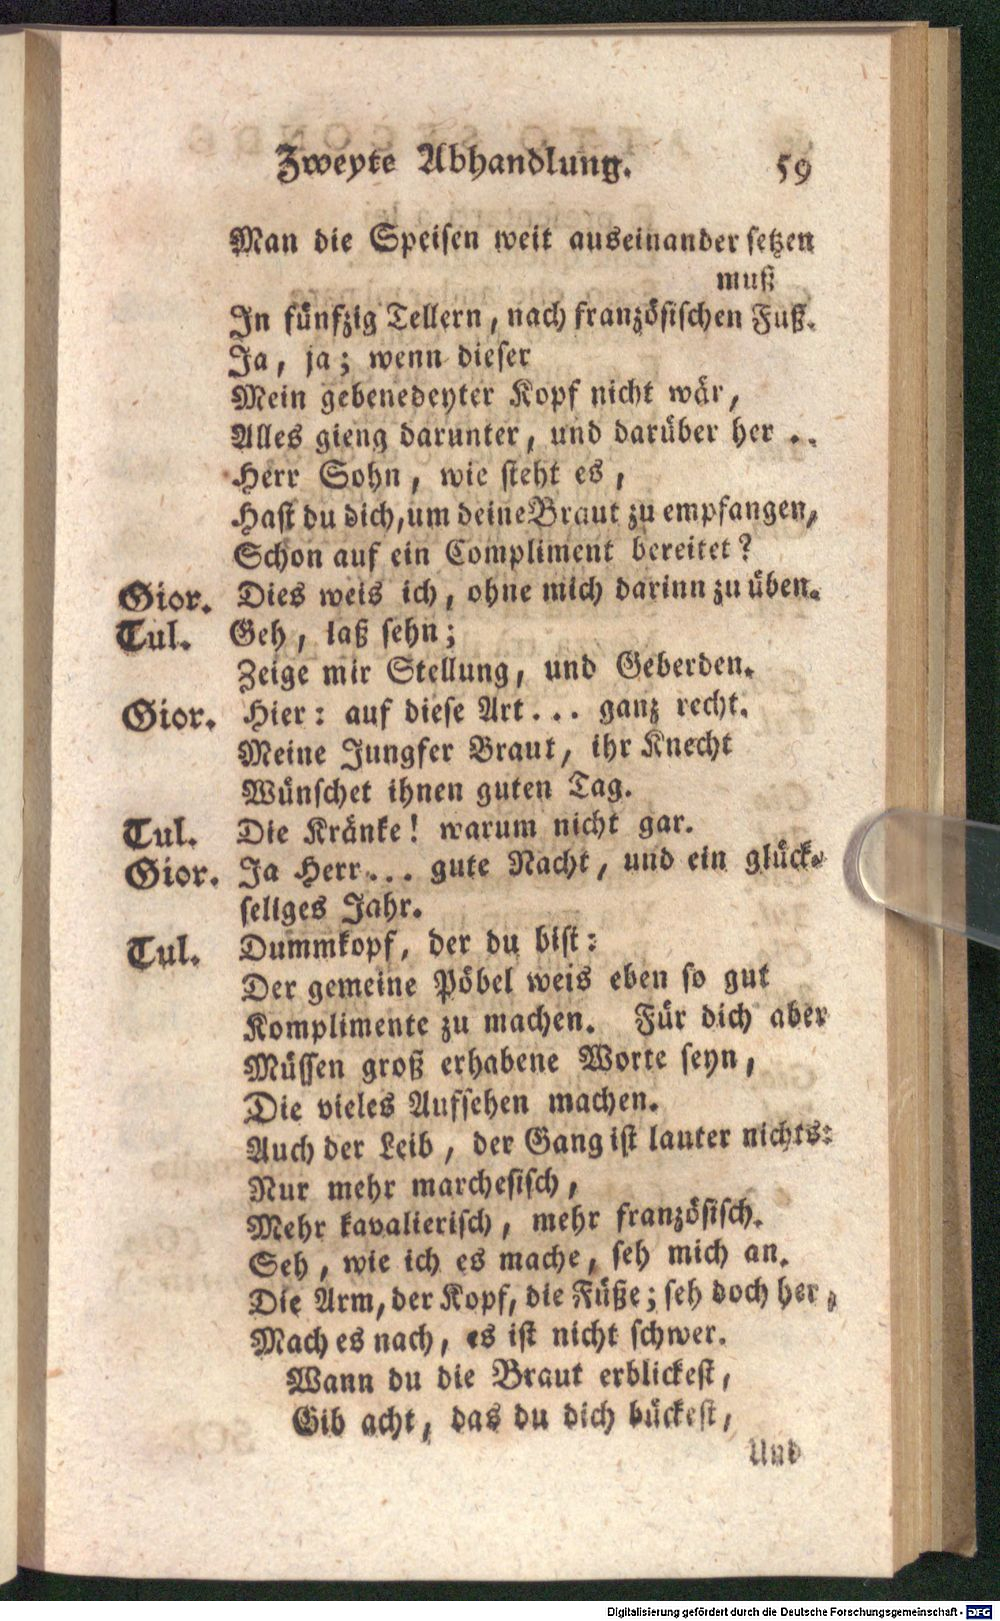 Zweyte Abhandlung. 59
Man die Speisen weit auseinander setzen
muß
In fünfzig Tellern, nach französischen Fuß.
Ja, ja; wenn dieser
Mein gebenedeyter Kopf nicht wär,
Alles gieng darunter, und darüber her ..
Herr Sohn, wie steht es,
Hast du dich, um deine Braut zu empfangen,
Schon auf ein Compliment bereitet?
Gior. Dies weis ich, ohne mich darinn zu üben.
Tul. Geh, laß sehn;
Zeige mir Stellung, und Geberden.
Gior. Hier: auf diese Art... ganz recht.
Meine Jungfer Braut, ihr Knecht
Wünschet ihnen guten Tag.
Tul. Die Kränke! warum nicht gar.
Gior. Ja Herr... gute Nacht, und ein glück-
seliges Jahr.
Tul. Dummkopf, der du bist:
Der gemeine Pöbel weis eben so gut
Komplimente zu machen. Für dich aber
Müssen groß erhabene Worte seyn,
Die vieles Aufsehen machen.
Auch der Leib, der Gang ist lauter nichts:
Nur mehr marchesisch,
Mehr kavalierisch, mehr französisch.
Seh, wie ich es mache, seh mich an.
Die Arm, der Kopf, die Füße; seh doch her,
Mach es nach, es ist nicht schwer.
Wann du die Braut erblickest,
Gib acht, das du dich bückest,
Und
Digitalisierung gefördert durch die Deutsche Forschungsgemeinschaft - DFG